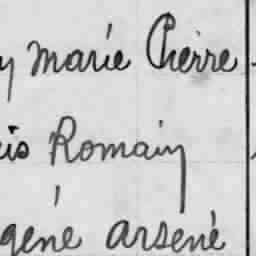 y Marie Pierre
is Romain
gène arsène